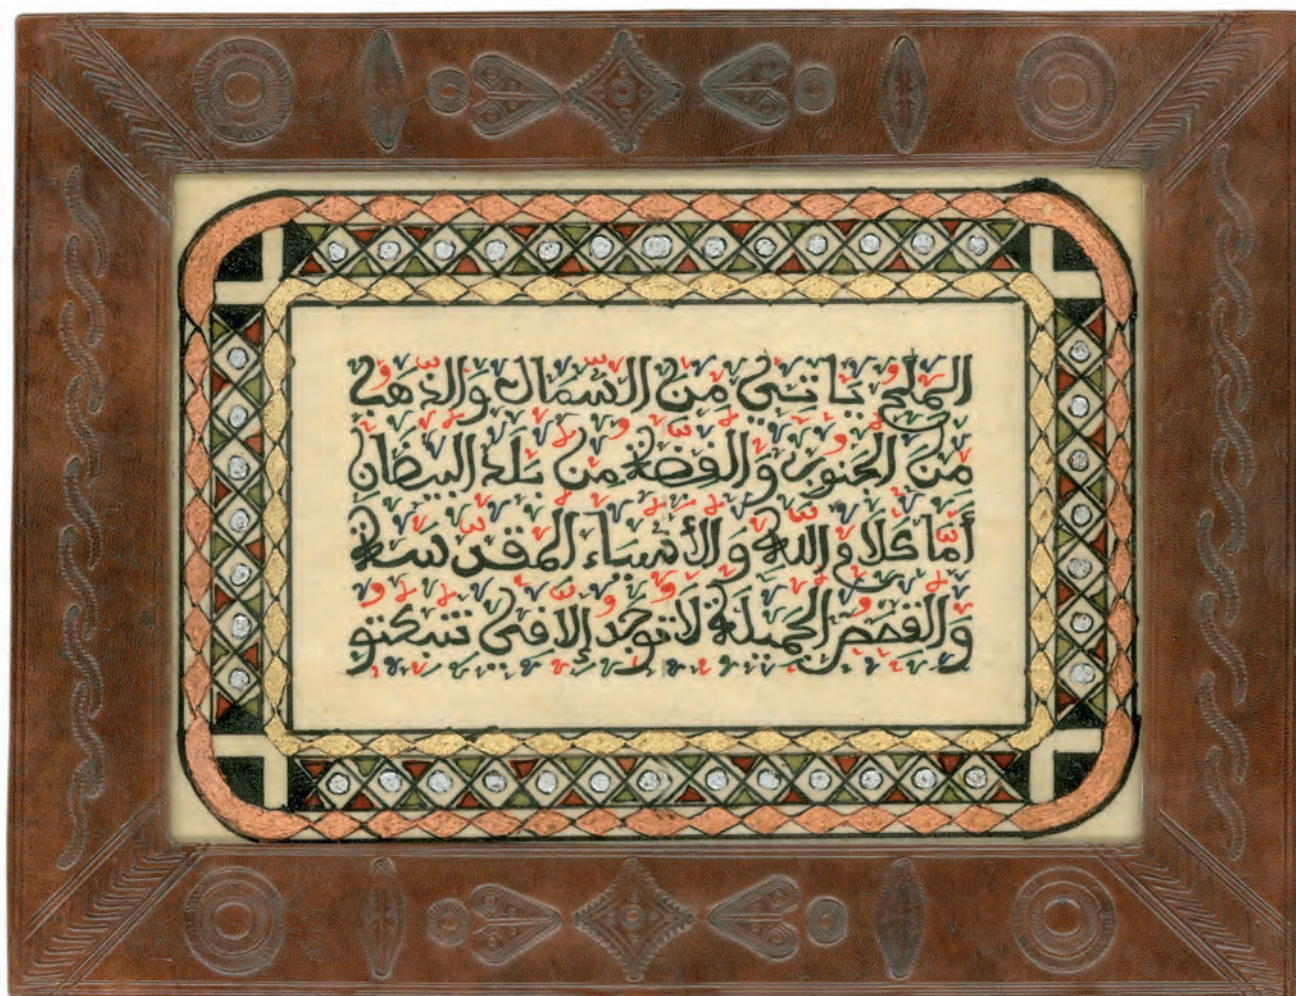 الملح ياتي من الشمال والذهب
من الجنوب والفضة من بلد البيضان
أما كلام الله والأشياء المقدسة
والقصص الجميلة لا توجد إلا في تنبكتو